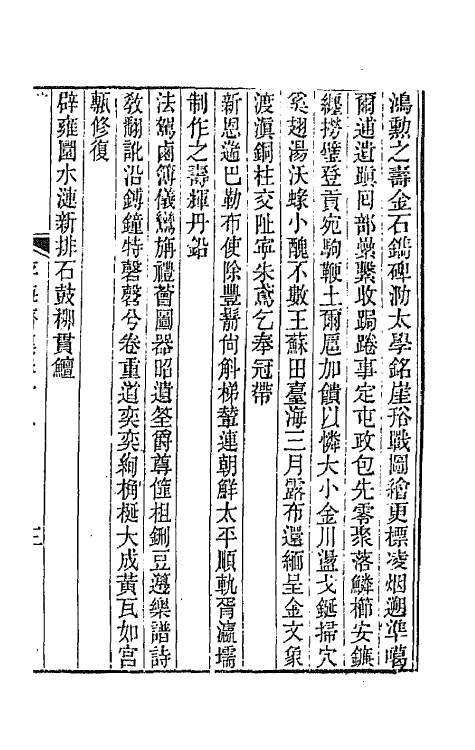 鴻勳之壽金石鐫碑泐太學銘崖峪戰圖繪更標凌烟遡準噶
爾逋遺蹟回部槖繫收跼踡事定屯政包先零聚落鱗櫛安鑣
纒捞壁登貢宛駒鞭土爾扈加饋以憐大小金川盪戈鋋掃穴
奚翅湯沃蝝小醜不數王蘇田臺海三月露布還緬呈金文象
渡滇銅柱交阯寧朱鳶乞奉冠帶
新恩遄巴勒布使除豐鬋尙斛梯輦連朝鮮太平順軌胥瀛壖
制作之壽輝丹鉛
法駕鹵簿儀鸞旃禮薈圖器昭遺筌爵尊俎鉶豆籩樂譜詩
敎翻訛沿鎛鐘特磬磬兮卷重道奕奕絢桷梴大成黃瓦如宮
甎修復
辟雍圜水漣新排石鼓柳貫鱣